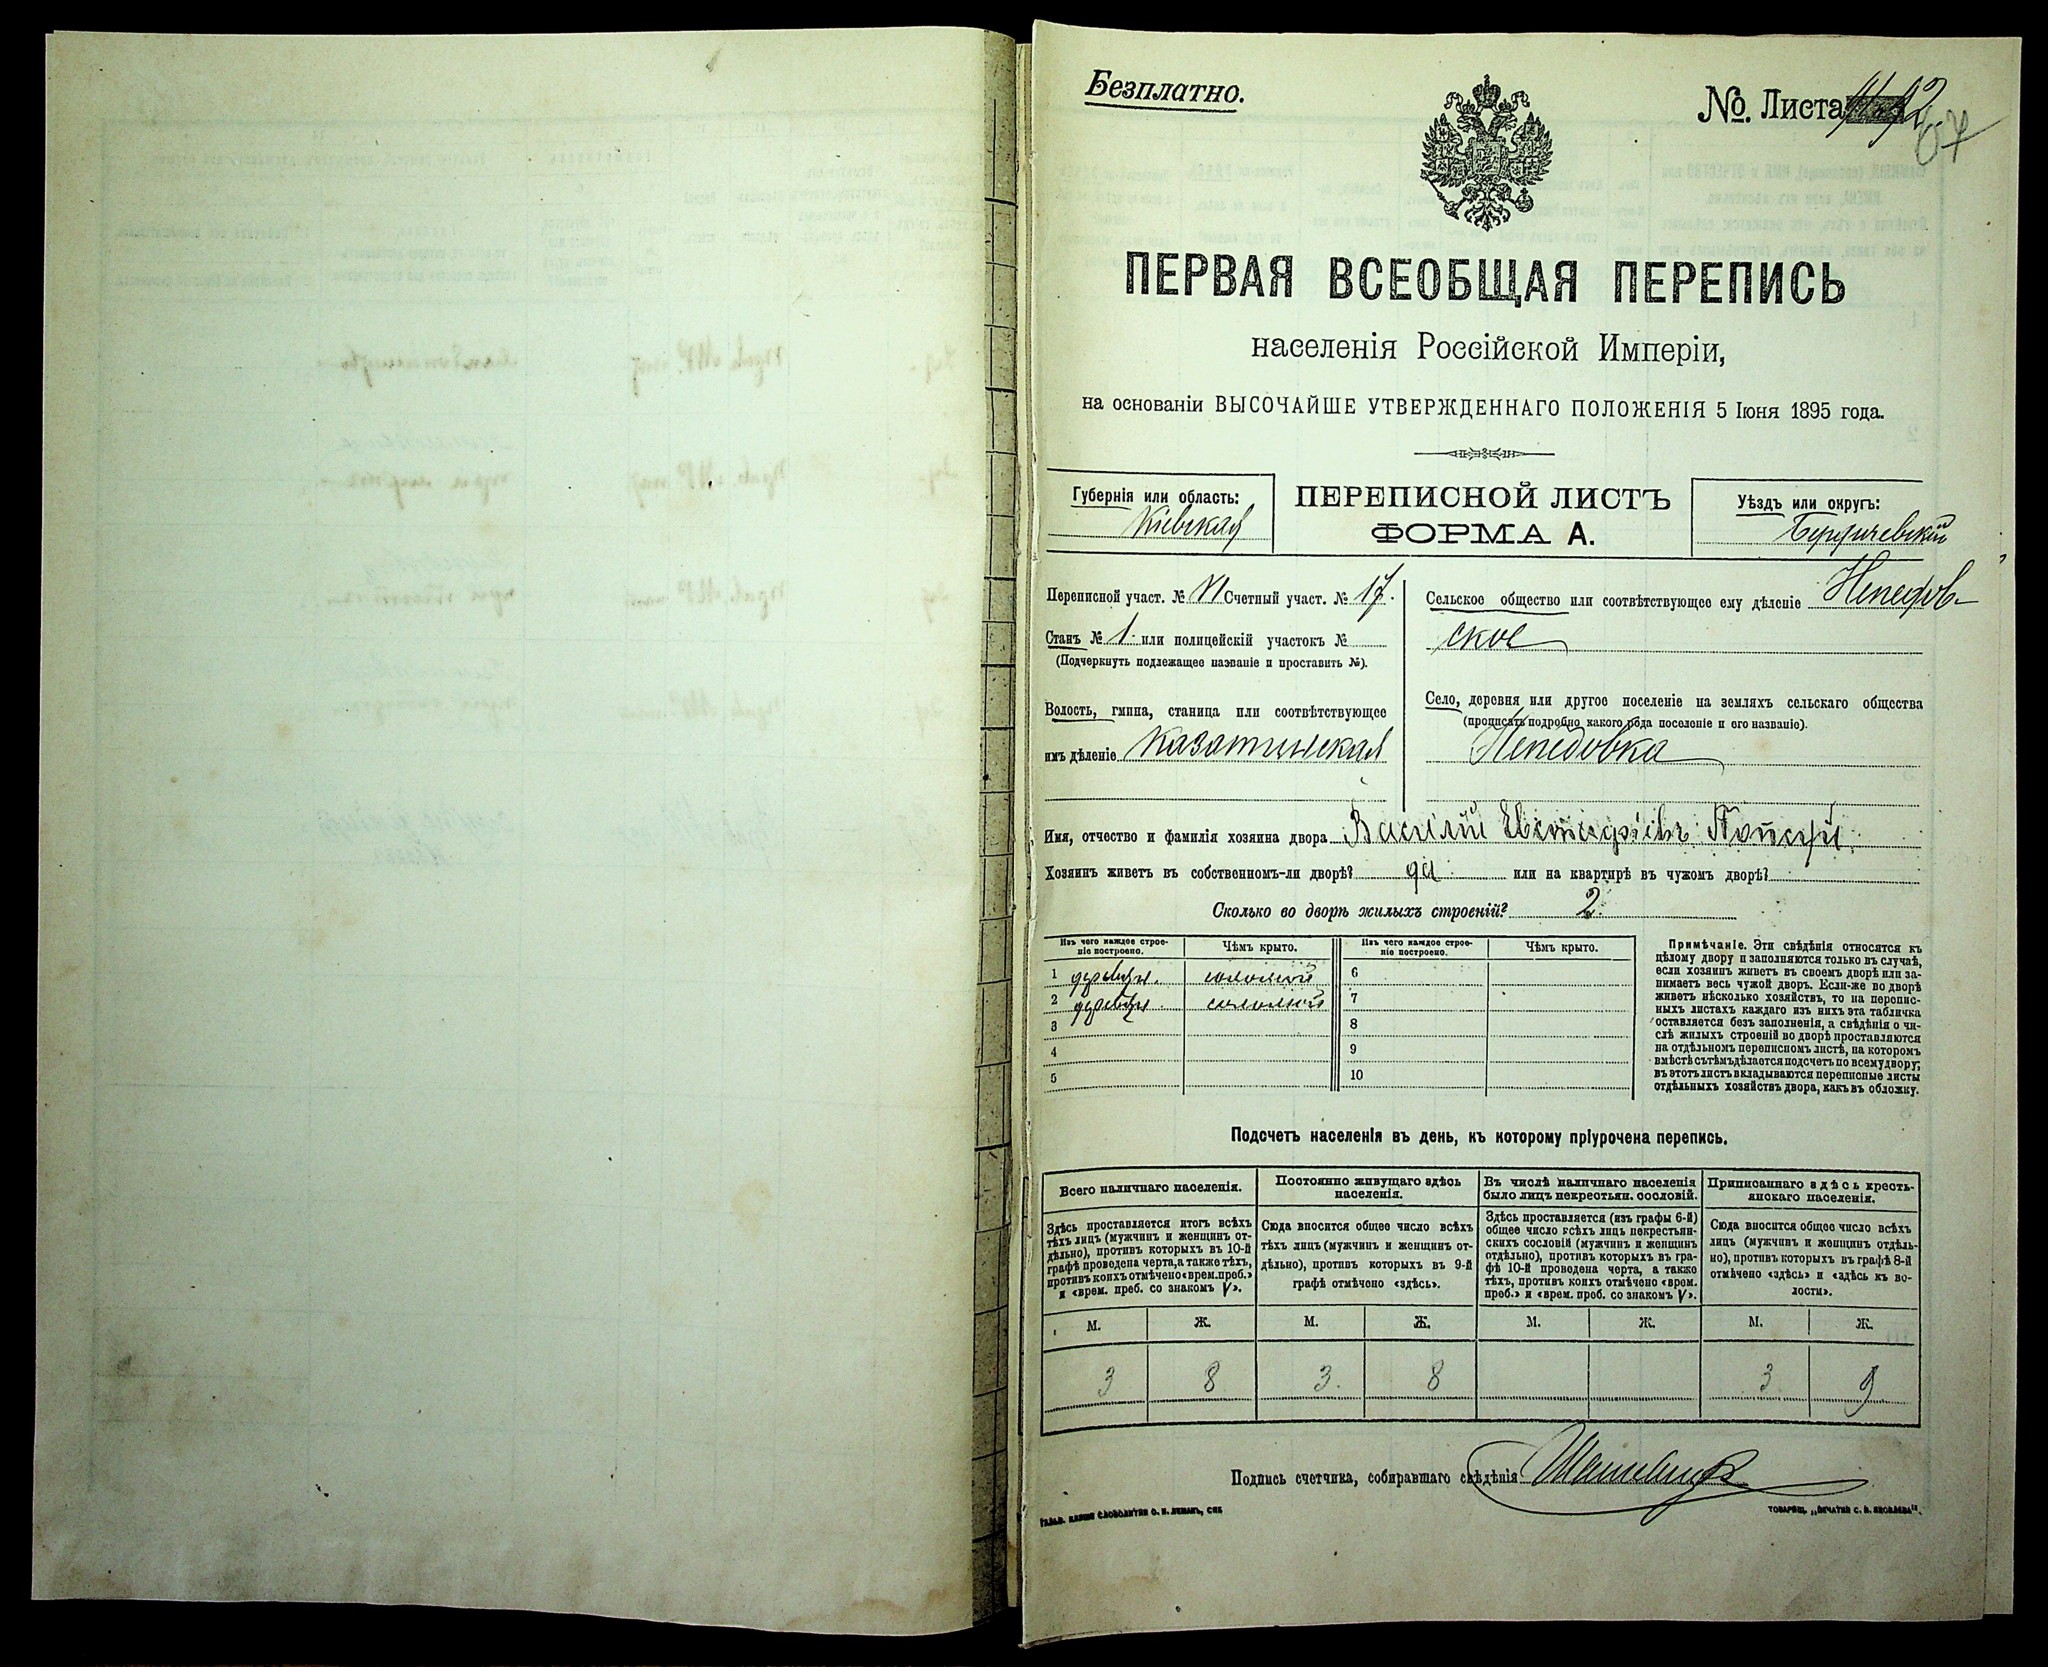 Безплатно.
№. Листа
67
ПЕРВАЯ ВСЕОБЩАЯ ПЕРЕПИСЬ
населенія Россійской Имперіи,
на основаніи ВЫСОЧАЙШЕ УТВЕРЖДЕННАГО ПОЛОЖЕНІЯ 5 Іюня 1895 года.
Губернія или область:
Кіевская
ПЕРЕПИСНОЙ ЛИСТЪ
ФОРМА А.
Уѣздъ или округъ:
Бердичевскій
Переписной участ. № VI Счетный участ. № 17.
Станъ № 1. или полицейскій участокъ №
(Подчеркнуть подлежащее названіе и проставить №).
Волость, гмина, станица или соотвѣтствующее
имъ дѣленіе Казатинская
Сельское общество или соотвѣтствующее ему дѣленіе Непедов-
ское
Село, деревня или другое поселеніе на земляхъ сельскаго общества
(прописать подробно какого рода поселеніе и его названіе).
Непедовка
Имя, отчество и фамилія хозяина двора Василій
Хозяинъ живетъ въ собственномъ-ли дворѣ? да или на квартирѣ въ чужомъ дворѣ?
Сколько во дворѣ жилыхъ строеній? 2.
Изъ чего каждое строе-
ніе построено.
Чѣмъ крыто.
Изъ чего каждое строе-
ніе построено.
Чѣмъ крыто.
1 деревян. соломой 6
2 деревян. соломой 7
3 8
4 9
5 10
Примѣчаніе. Эти свѣдѣнія относятся къ
цѣлому двору и заполняются только въ случаѣ,
если хозяинъ живетъ въ своемъ дворѣ или за-
нимаетъ весь чужой дворъ. Если-же во дворѣ
живетъ нѣсколько хозяйствъ, то на перепис-
ныхъ листахъ каждаго изъ нихъ эта табличка
оставляется безъ заполненія, а свѣдѣнія о чи-
слѣ жилыхъ строеній во дворѣ проставляются
на отдѣльномъ переписномъ листѣ, на которомъ
вмѣстѣ съ тѣмъ дѣлается подсчетъ по всему двору;
въ этотъ листъ вкладываются переписные листы
отдѣльныхъ хозяйствъ двора, какъ въ обложку.
Подсчетъ населенія въ день, къ которому пріурочена перепись.
Всего наличнаго населенія.
Здѣсь проставляется итогъ всѣхъ
тѣхъ лицъ (мужчинъ и женщинъ от-
дѣльно), противъ которыхъ въ 10-й
графѣ проведена черта, а также тѣхъ,
противъ коихъ отмѣчено «врем. преб.»
и «врем. преб. со знакомъ V».
Постоянно живущаго здѣсь
населенія.
Сюда вносится общее число всѣхъ
тѣхъ лицъ (мужчинъ и женщинъ от-
дѣльно), противъ которыхъ въ 9-й
графѣ отмѣчено «здѣсь».
Въ числѣ наличнаго населенія
было лицъ некрестьян. сословій.
Здѣсь проставляется (изъ графы 6-й)
общее число всѣхъ лицъ некрестьян-
скихъ сословій (мужчинъ и женщинъ
отдѣльно), противъ которыхъ въ гра-
фѣ 10-й проведена черта, а также
тѣхъ, противъ коихъ отмѣчено «врем.
преб.» и «врем. преб. со знакомъ V».
Приписаннаго здѣсь кресть-
янскаго населенія.
Сюда вносится общее число всѣхъ
лицъ (мужчинъ и женщинъ отдѣль-
но), противъ которыхъ въ графѣ 8-й
отмѣчено «здѣсь» и «здѣсь къ во-
лости».
М. Ж. М. Ж. М. Ж. М. Ж.
3 8 3. 8 3 9
Подпись счетчика, собиравшаго свѣдѣнія
ТОВАРИЩ. „ПЕЧАТНЯ С. П. ЯКОВЛЕВА".